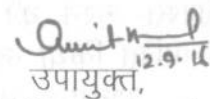 12.9.16
उपायुक्त,